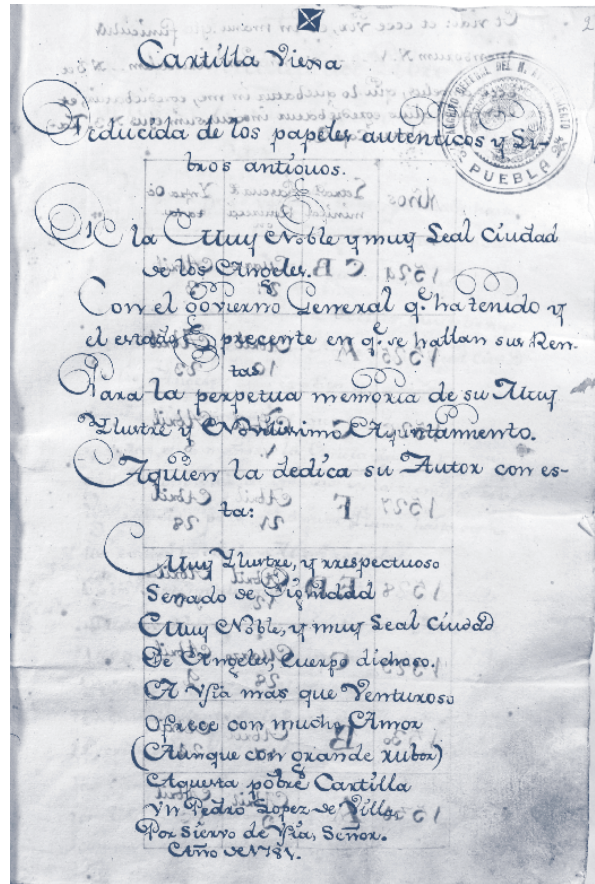 2
Cartilla Vieja
Reducida de los papeles autenticos y Li-
bros antiquos.
De la Muy Noble y muy Leal Ciudad
de los Angeles.
Con el govierno General q.e ha tenido y
el estado precente en q.e se hallan sus Ren-
tas
Para la perpetua memoria de su Muy
Ylustre y Novilisimo Ayuntamiento.
Aquien la dedica su Autor con es-
ta:
Muy Ylustre, y rrespectuoso
Senado de Dignidad
Muy Noble, y muy Leal Ciudad
De Angeles, Cuerpo dichoso.
A Vsia mas que Venturoso
Ofrece con mucho Amor
(Aunque con grande rubor)
Aquesta pobre Cartilla
Vn Pedro Lopez de Villa
Por Siervo de Vsia, Señor.
Año de 1781.
PUEBLA